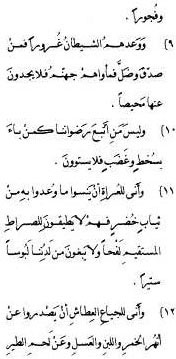 وفجوراً .
٩) ووعدهم الشيطان غروراً فمن
صدّق وضلّ فمأواهم جهنّم فلا يجدون
عنها محيصاً .
١٠) وليس من أتبع رضواننا كمن باء
بسخط وغضب فلا يستوون .
١١) وأنى للعراة أن ينسوا ما وعدوا به من
ثياب خضر فهم لا يطيقون للصراط
المستقيم لفحاً ولا يبغون من لدنا لبوساً
ستيراً .
١٢) وأنى للجياع العطاش أن يصدروا عن
أنهر الخمر واللبن والعسل وعن لحم الطير